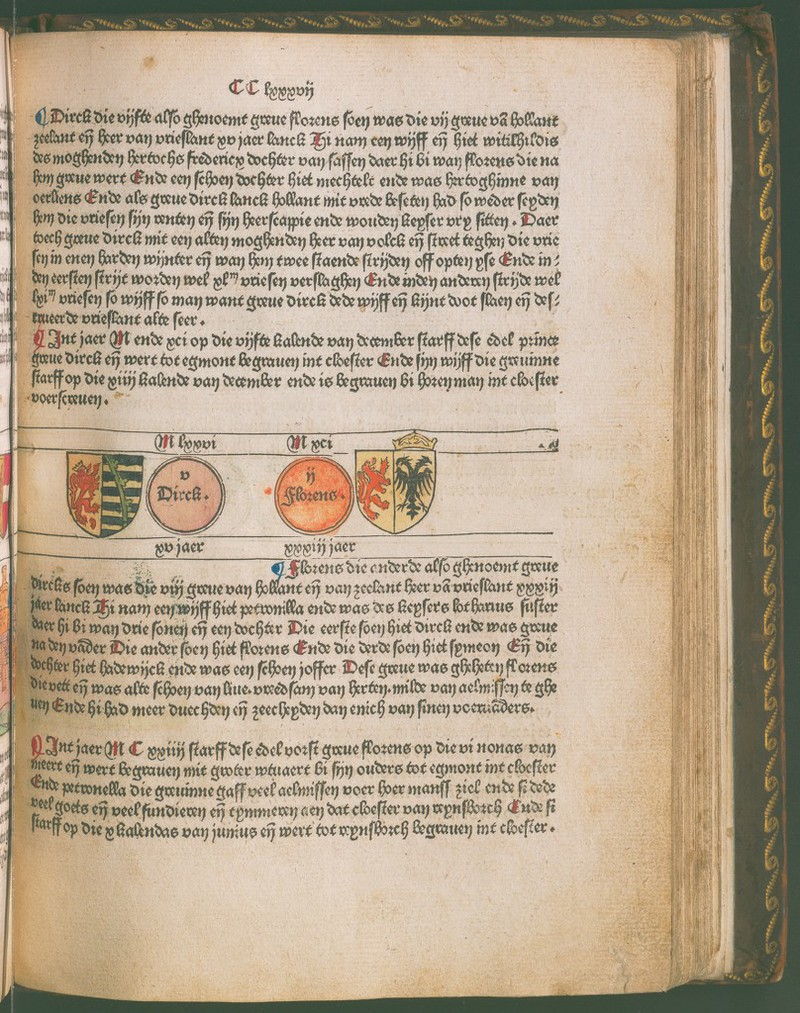 CC lxxxvij
¶ Dirck die vijfte also ghenoemt greue florens soen was die vij greue vā hollant
zeelant eñ heer van vrieslant xv jaer lanck Hi nam een wijff eñ hiet witilhildis
des moghenden hertochs fredericx dochter van sassen daer hi bi wan florens die na
hem greue wert Ende een schoen dochter hiet mechtelt ende was hertoghinne van
oerliens Ende als greue dirck lanck hollant mit vrede beseten had so weder seyden
hem die vriesen sijn renten eñ sijn heerscappie ende wouden keyser vry sitten . Daer
toech greue dirck mit een alten moghenden heer van volck eñ street teghen die vrie
sen in enen harden wijnter eñ wan hem twee staende strijden off opten yse Ende in⸗
den eersten strijt worden wel xlᵐ vriesen verslaghen Ende inden anderen strijde wel
lxiᵐ vriesen so wijff so man want greue dirck dede wijff eñ kijnt doot slaen eñ des⸗
trueerde vrieslant alte seer .
¶ Int jaer M ende xci op die vijfte kalende van december starff dese edel prince
greue dirck eñ wert tot egmont begrauen int cloester Ende sijn wijff die greuinne
starff op die xiiij kalende van december ende is begrauen bi horen man int cloester
voerscreuen .
M lxxvi M xci
v Dirck . ij Florens .
xv jaer xxxiij jaer
¶ Florens die anderde also ghenoemt greue
dircks soen was die viij greue van hollant eñ van zeelant heer vā vrieslant xxxiij
jaer lanck Hi nam een wijff hiet petronilla ende was des keysers lotharius suster
daer hi bi wan drie sonen eñ een dochter Die eerste soen hiet dirck ende was greue
na den vader Die ander soen hiet florens Ende die derde soen hiet symeon Eñ die
dochter hiet hadewijck ende was een schoen joffer Dese greue was gheheten florens
die vett eñ was alte schoen van liue. vreedsam van herten. milde van aelmissen te ghe
uen Ende hi had meer duechden eñ zeecheyden dan enich van sinen voeruaders.
¶ Int jaer M C xxiiij starff dese edel vorst greue florens op die vi nonas van
meert eñ wert begrauen mit groter wtuaert bi sijn ouders tot egmont int cloester
Ende petronella die greuinne gaff veel aelmissen voer hoer manss ziel ende si dede
veel goets eñ veel fundieren eñ tymmeren aen dat cloester van reynsborch Ende si
starff op die x kalendas van junius eñ wert tot reynsborch begrauen int cloester .